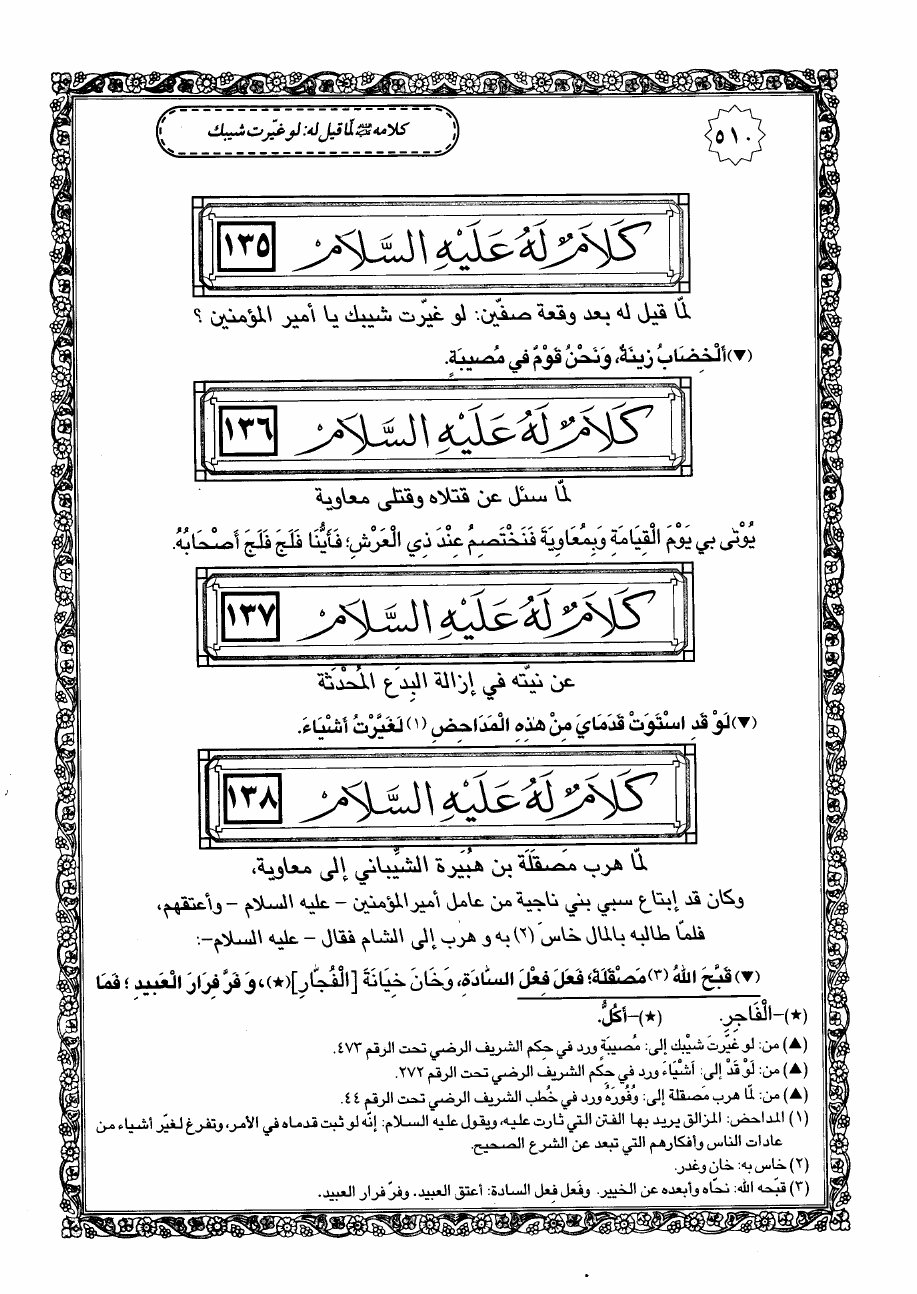 ٥١٠
كلامه ﷺ لمّا قيل له: لو غيّرت شيبك
كَلَامٌ لَهُ عَلَيْهِ السَّلَامُ
١٣٥
لمّا قيل له بعد وقعة صفّين: لو غيّرت شيبك يا أمير المؤمنين ؟
(▼) أَلْخِضَابُ زِينَةٌ، وَنَحْنُ قَوْمٌ في مُصيبَةٍ.
كَلَامٌ لَهُ عَلَيْهِ السَّلَامُ
١٣٦
لمّا سئل عن قتلاه وقتلى معاوية
يُوْتى بي يَوْمَ الْقِيَامَةِ وَبِمُعَاوِيَةَ فَنَخْتَصِمُ عِنْدَ ذِي الْعَرْشِ؛ فَأَيُّنَا فَلَجَ فَلَجَ أَصْحَابُهُ.
كَلَامٌ لَهُ عَلَيْهِ السَّلَامُ
١٣٧
عن نيّته في إزالة البِدَع المُحْدَثَة
(▼) لَوْ قَدِ اسْتَوَتْ قَدَمَايَ مِنْ هٰذِهِ الْمَدَاحِضِ (١) لَغَيَّرْتُ أَشْيَاءَ.
كَلَامٌ لَهُ عَلَيْهِ السَّلَامُ
١٣٨
لمّا هرب مَصقلَة بن هُبَيرة الشيّباني إلى معاوية،
وكان قد إبتاع سبي بني ناجية من عامل أمير المؤمنين - عليه السلام - وأعتقهم،
فلمّا طالبه بالمال خاسَ (٢) به و هرب إلى الشام فقال - عليه السلام-:
(▼) قَبَّحَ اللهُ (٣) مَصْقَلَةَ؛ فَعَلَ فِعْلَ السَّادَةِ، وَخَانَ خِيَانَةَ [الْفُجَّارِ] (★)، وَ فَرَّ فِرَارَ الْعَبيدِ ؛ فَمَا
(★)–الْفَاجِرِ. (★)–أكُلُّ.
(▲) من: لو غيَّرتَ شَيْبك إلى: مُصيبَةٍ ورد في حِكم الشريف الرضي تحت الرقم ٤٧٣.
(▲) من: لَوْ قَدْ إلى: أَشْيَاءَ ورد في حِكَم الشريف الرضي تحت الرقم ٢٧٢.
(▲) من: لمّا هرب مَصقلة إلى: وُفُورَهُ ورد في خُطب الشريف الرضي تحت الرقم ٤٤.
(١) المداحض: المزالق يريد بها الفتن التي ثارت عليه، ويقول عليه السلام: إنّه لو ثبت قدماه في الأمر، وتفرغ لغيّر أشياء من
عادات الناس وأفكارهم التي تبعد عن الشرع الصحيح.
(٢) خاس به: خان وغدر.
(٣) قبّحه الله: نحّاه وأبعده عن الخيير. وفَعل فعل السادة: أعتق العبيد. وفرّ فرار العبيد.